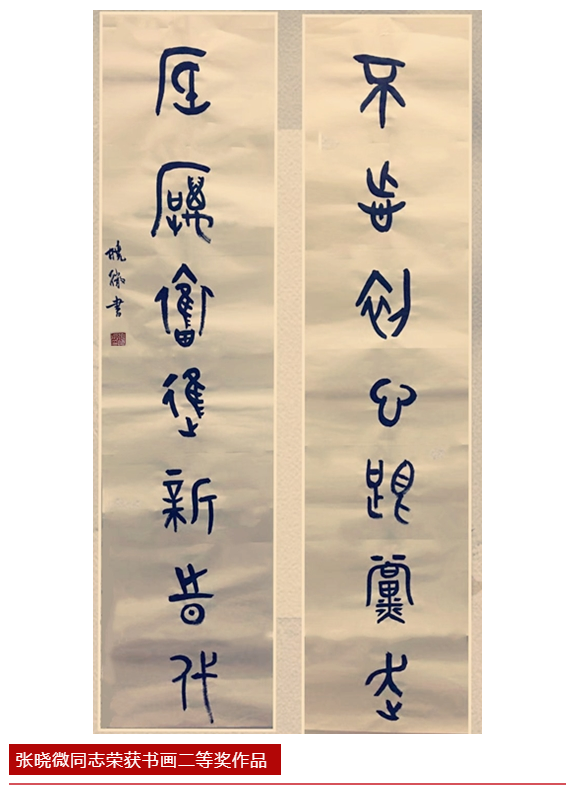 不忘初心跟黨走
砥礪奮進新時代
曉微書
张晓微同志荣获书画二等奖作品